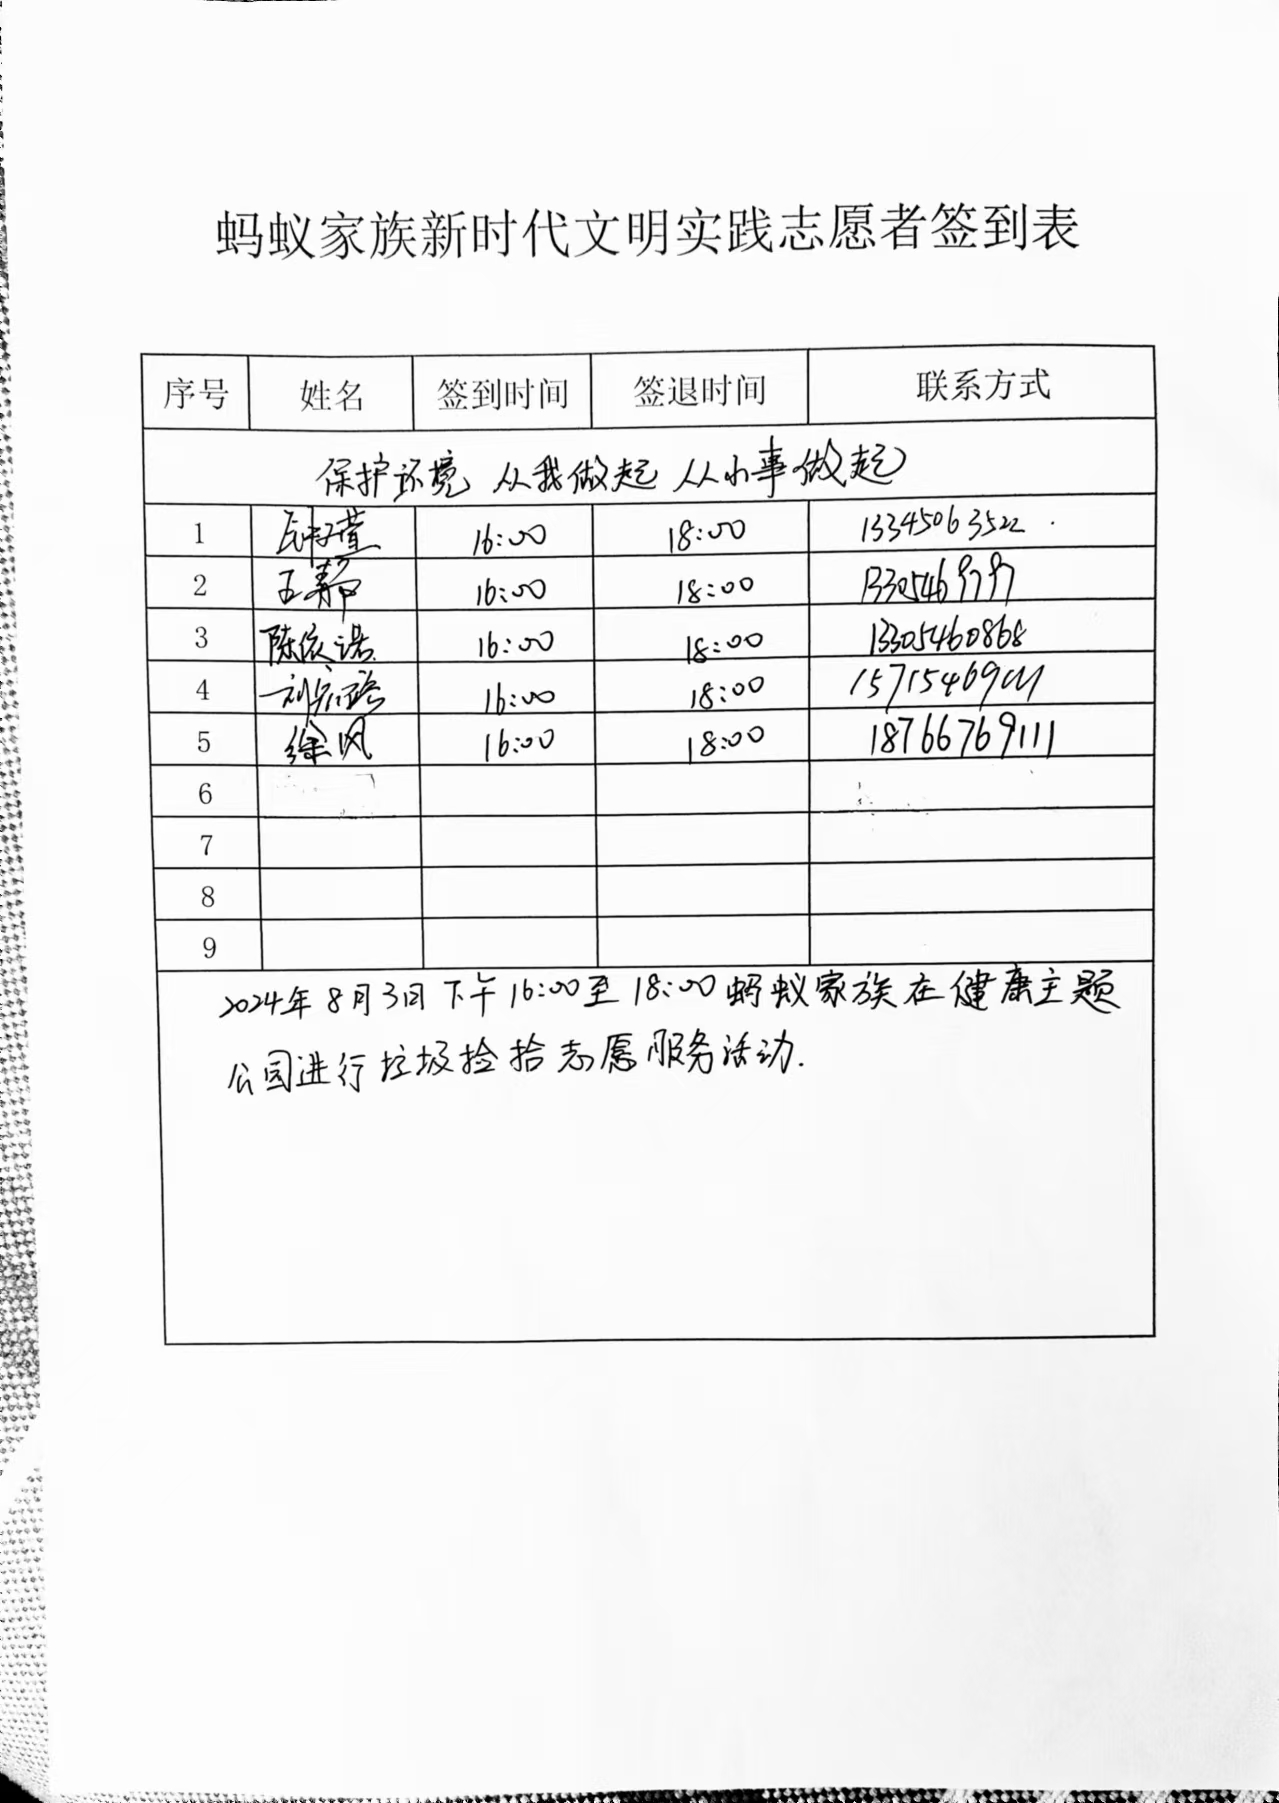 蚂蚁家族新时代文明实践志愿者签到表
序号 姓名 签到时间 签退时间 联系方式
保护环境 从我做起 从小事做起
1 16:00 18:00 13345063522
2 王静 16:00 18:00 1330546
3 陈依诺 16:00 18:00 13305460868
4 16:00 18:00 1571546
5 徐风 16:00 18:00 18766769111
6
7
8
9
2024年8月3日下午16:00至18:00蚂蚁家族在健康主题
公园进行垃圾捡拾志愿服务活动.